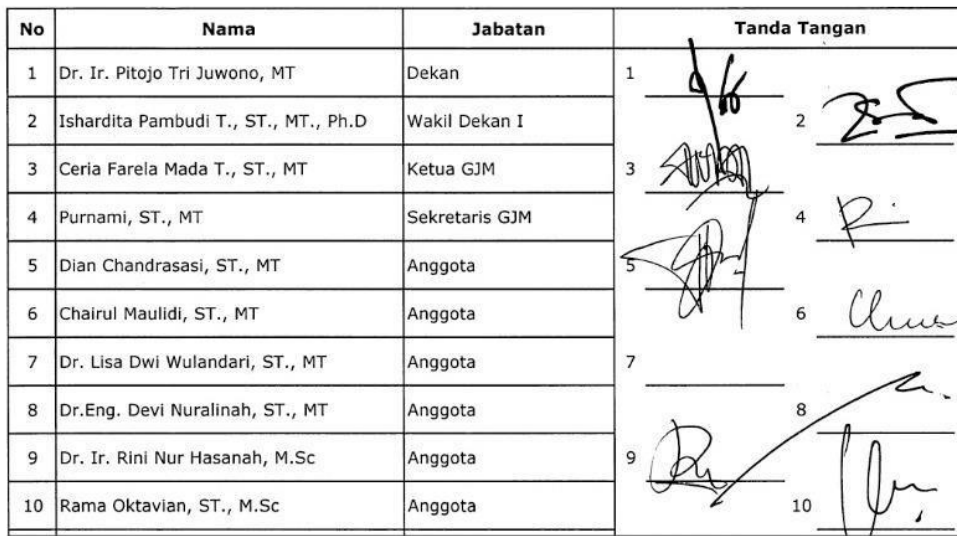 No Nama Jabatan Tanda Tangan
1 Dr. Ir. Pitojo Tri Juwono, MT Dekan 1
2 Ishardita Pambudi T., ST., MT., Ph.D Wakil Dekan I 2
3 Ceria Farela Mada T., ST., MT Ketua GJM 3
4 Purnami, ST., MT Sekretaris GJM 4
5 Dian Chandrasasi, ST., MT Anggota 5
6 Chairul Maulidi, ST., MT Anggota 6
7 Dr. Lisa Dwi Wulandari, ST., MT Anggota 7
8 Dr.Eng. Devi Nuralinah, ST., MT Anggota 8
9 Dr. Ir. Rini Nur Hasanah, M.Sc Anggota 9
10 Rama Oktavian, ST., M.Sc Anggota 10